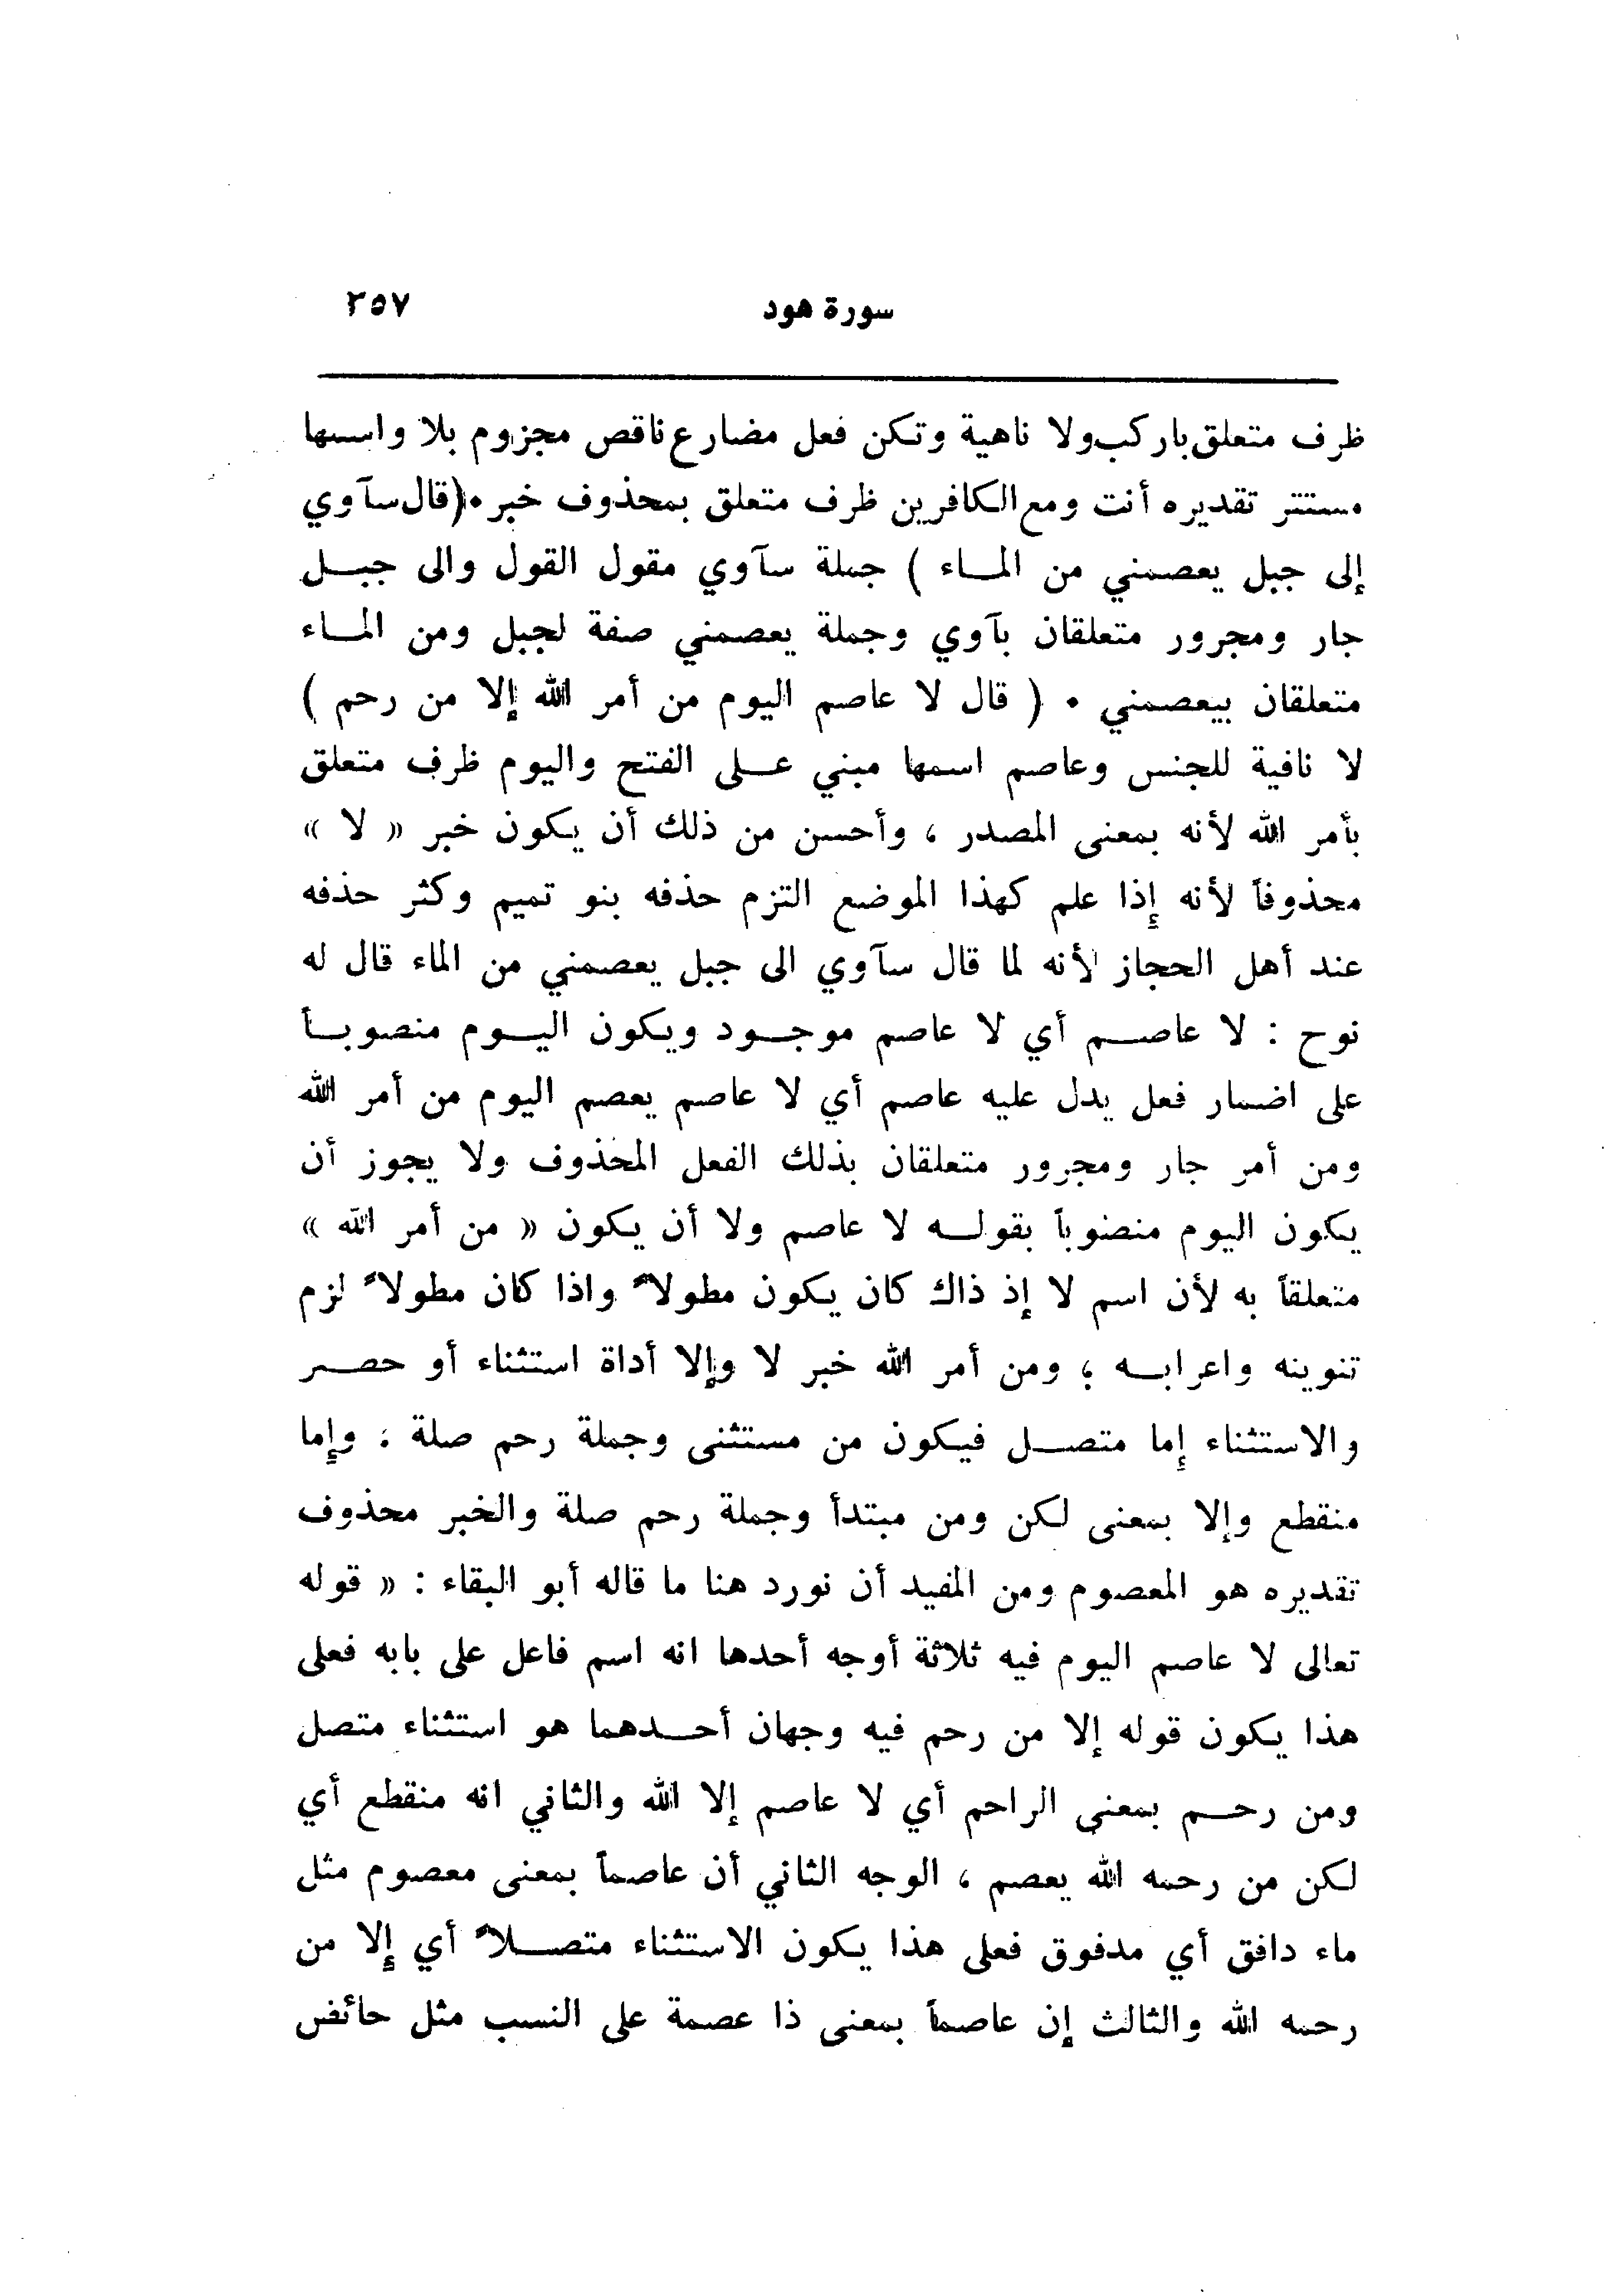 سورة هود
٣٥٧
ظرف متعلق باركب ولا ناهية وتكن فعل مضارع ناقص مجزوم بلا واسمها
مستتر تقديره أنت ومع الكافرين ظرف متعلق بمحذوف خبر . ( قال سآوي
إلى جبل يعصمني من المـاء ) جملة سآوي مقول القول والى جبـل
جار ومجرور متعلقان بآوي وجملة يعصمني صفة لجبل ومن المـاء
متعلقان بيعصمني . ( قال لا عاصم اليوم من أمر الله إلا من رحم )
لا نافية للجنس وعاصم اسمها مبني عـلى الفتح واليوم ظرف متعلق
بأمر الله لأنه بمعنى المصدر ، وأحسن من ذلك أن يكون خبر « لا »
محذوفاً لأنه إذا علم كهذا الموضع التزم حذفه بنو تميم وكثر حذفه
عند أهل الحجاز لأنه لما قال سآوي الى جبل يعصمني من الماء قال له
نوح : لا عاصـم أي لا عاصم موجـود ويكون اليـوم منصوبـاً
على اضمار فعل يدل عليه عاصم أي لا عاصم يعصم اليوم من أمر الله
ومن أمر جار ومجرور متعلقان بذلك الفعل المحذوف ولا يجوز أن
يكون اليوم منصوباً بقولـه لا عاصم ولا أن يكون « من أمر الله »
متعلقاً به لأن اسم لا إذ ذاك كان يكون مطولاً واذا كان مطولاً لزم
تنوينه واعرابـه ؛ ومن أمر الله خبر لا وإلا أداة استثناء أو حصـر
والاستثناء إما متصـل فيكون من مستثنى وجملة رحم صلة ؛ وإما
منقطع وإلا بمعنى لكن ومن مبتدأ وجملة رحم صلة والخبر محذوف
تقديره هو المعصوم ومن المفيد أن نورد هنا ما قاله أبو البقاء : « قوله
تعالى لا عاصم اليوم فيه ثلاثة أوجه أحدها انه اسم فاعل على بابه فعلى
هذا يكون قوله إلا من رحم فيه وجهان أحـدهما هو استثناء متصل
ومن رحـم بمعنى الراحم أي لا عاصم إلا الله والثاني انه منقطع أي
لكن من رحمه الله يعصم ، الوجه الثاني أن عاصماً بمعنى معصوم مثل
ماء دافق أي مدفوق فعلى هذا يكون الاستثناء متصـلاً أي إلا من
رحمه الله والثالث إن عاصماً بمعنى ذا عصمة على النسب مثل حائض